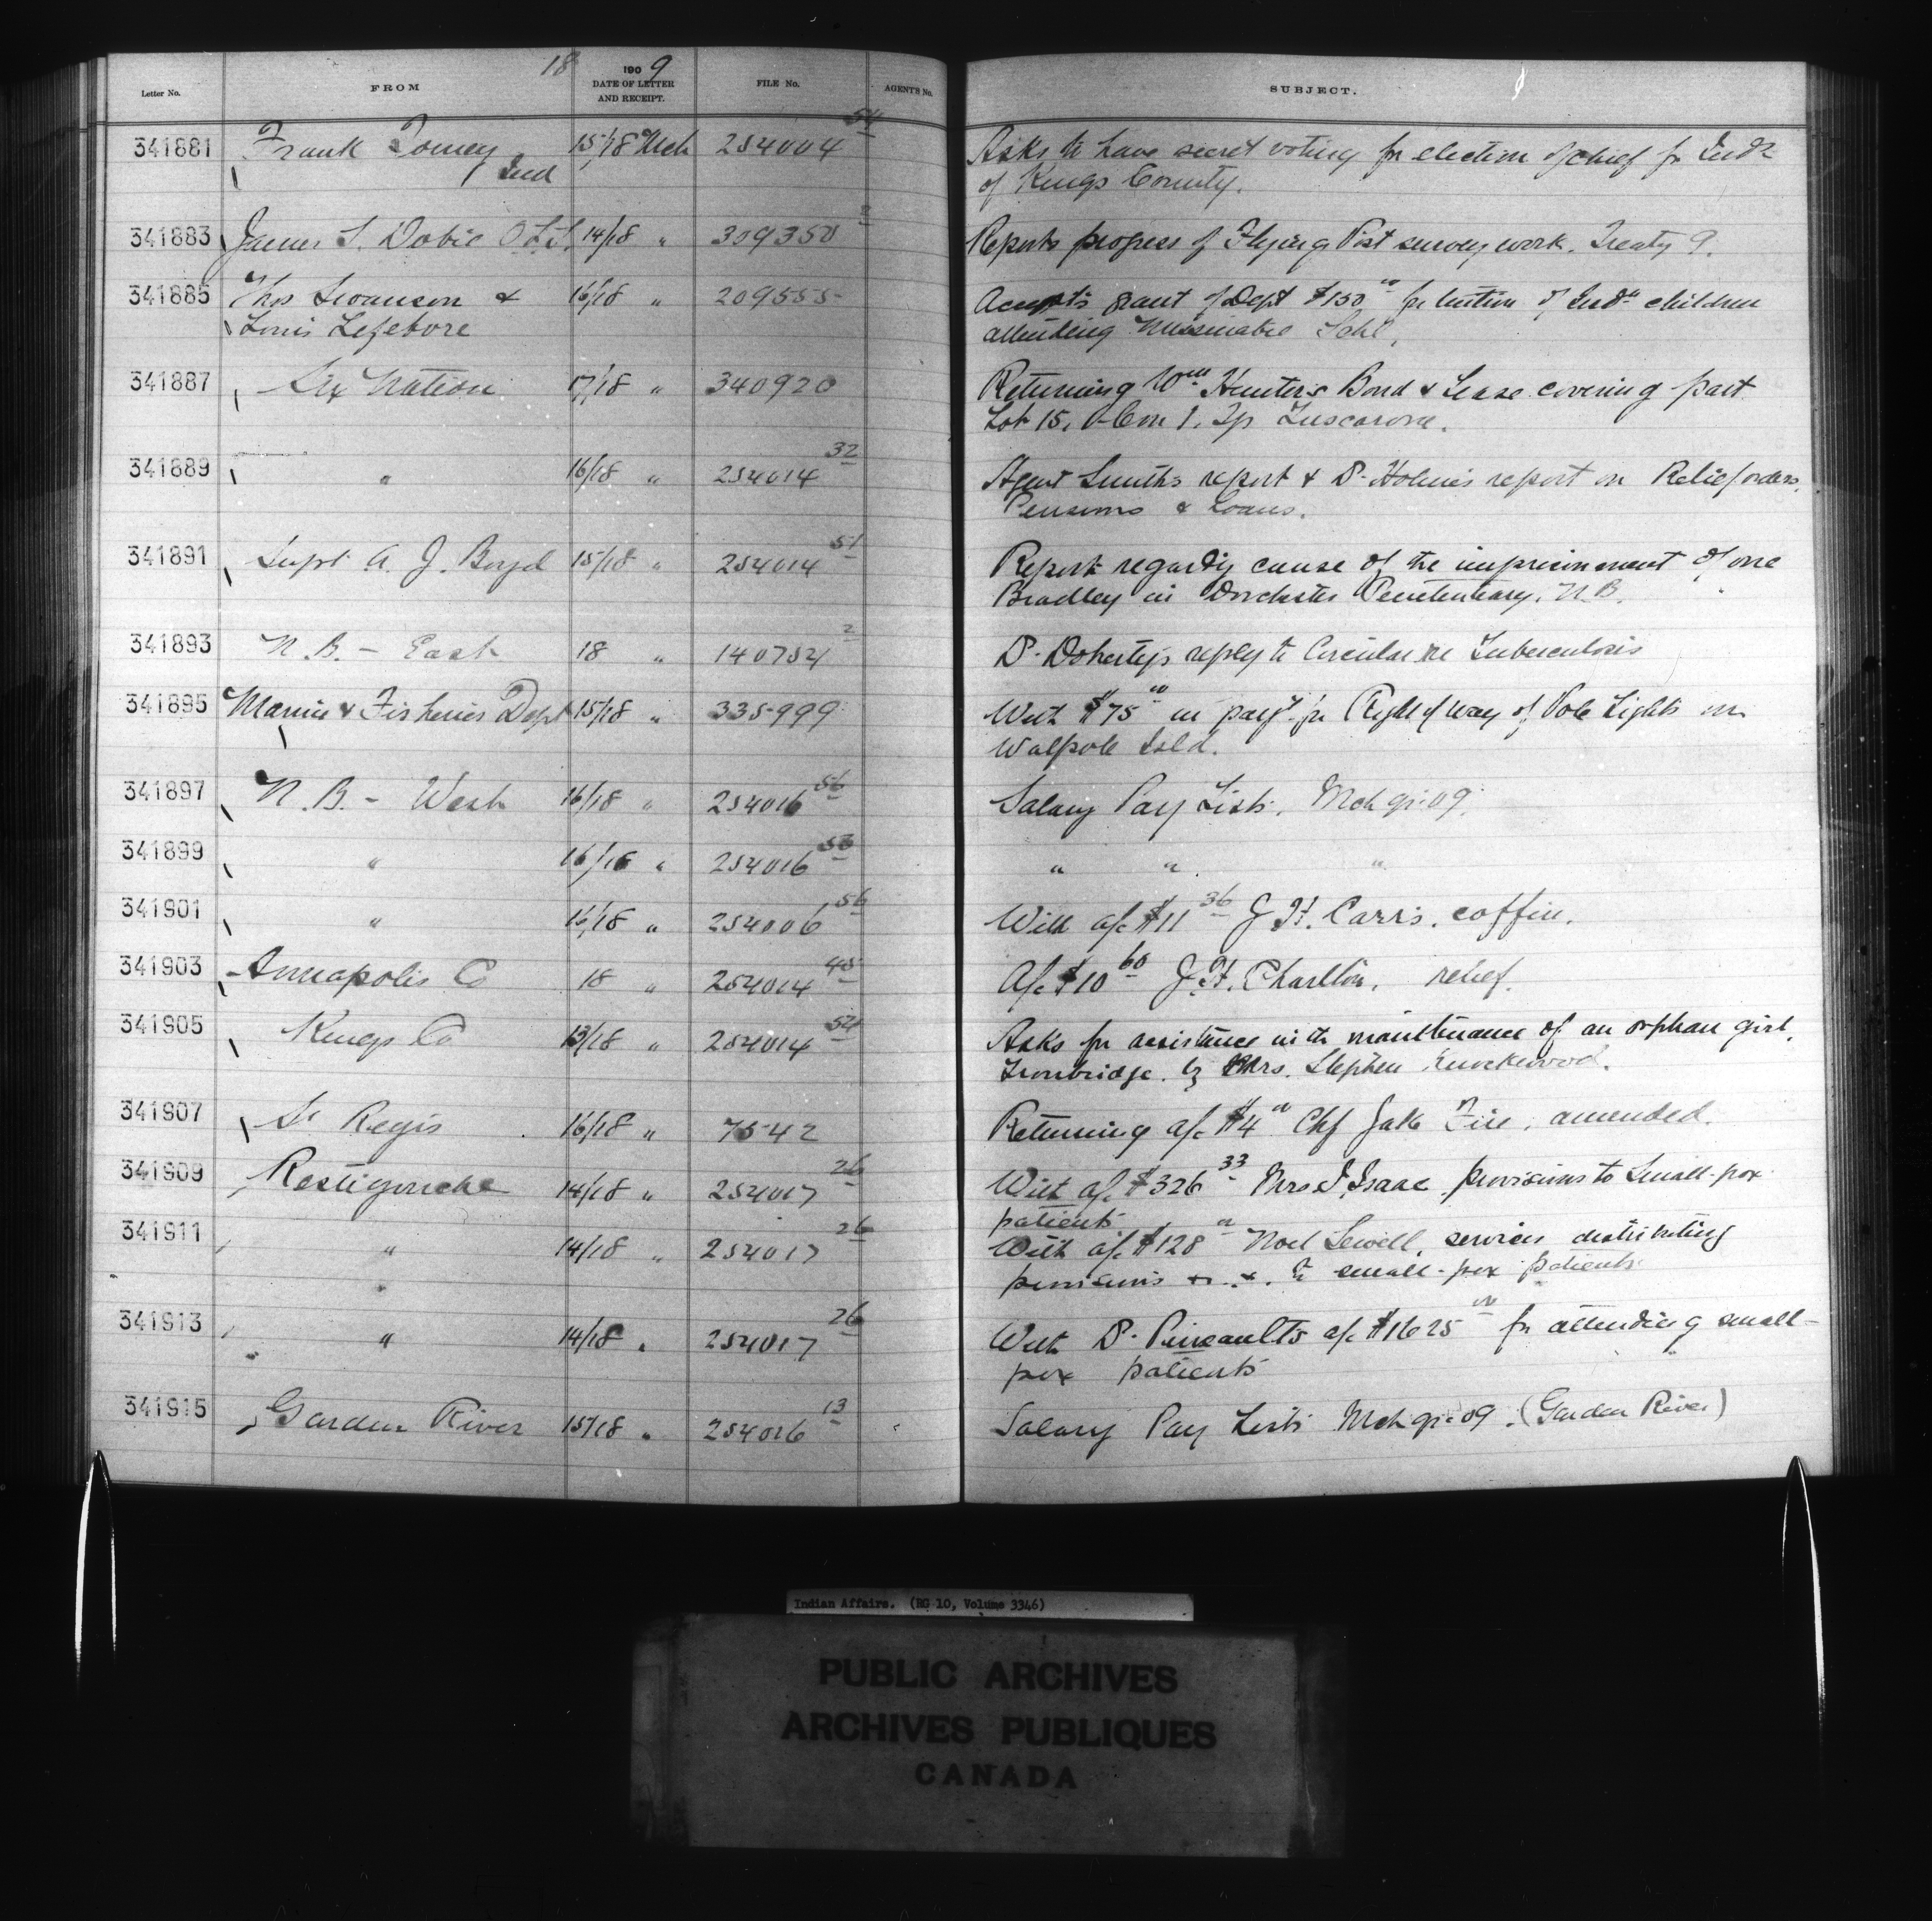 18 1909
Letter No. FROM DATE OF LETTER AND RECEIPT. FILE No. AGENT'S No. SUBJECT.
341881 Frank Tomey 15/18 Mch 254004 54 Asks to have secret voting for election of chief for Inds
Ind of Kings County.
341883 James S. Dobie O.L.S. 14/18 " 309350 2 Reports progress of Flying Post survey work. Treaty 9.
341885 Thos Swanson & 16/18 " 209555 Accepts grant of Dept $150 00 for tuition of Indn children
Louis Lefebore attending Missinabie Schl.
341887 Six Nation 17/18 " 340920 Returning Wm Hunter's Bond & Lease covering part
Lot 15, Con 1, Tp Tuscarora.
341889 " 16/18 " 254014 32 Agent Smith's report & Dr Holmes report on Relief orders,
Pensions & Loans.
341891 Supt A. J. Boyd 15/18 " 254014 51 Report regardig cause of the imprisonment of one
Bradley in Dorchester Penitentiary, N.B.
341893 N.B. - East 18 " 140754 2 Dr Doherty's reply to Circular re Tuberculosis
341895 Marine & Fisheries Dept 15/18 " 335999 With $75 00 in payt for Right of way of Pole Lights on
Walpole Isld.
341897 N.B. - West 16/18 " 254016 56 Salary Pay Lists. Mch qr. 09.
341899 " 16/18 " 254016 " " "
341901 " 16/18 " 254006 56 With a/c $11 36 J. H. Carr's, coffin.
341903 Annapolis Co 18 " 254014 A/c $10 60 J. H. Charlton, relief.
341905 Kings Co 13/18 " 254014 54 Asks for assistance with maintenance of an orphan girl,
Ironbridge, by Mrs. Stephen Knockwood.
341907 St Regis 16/18 " 7542 Returning a/c $4 00 Chf Jake Fire, amended.
341909 Restigouche 14/18 " 254017 26 With a/c $326 33 Mrs I. Isaac provisions to Small-pox
patients
341911 " 14/18 " 254017 26 With a/c $128 00 Noel Sewell, services distributing
provisions &. &. to small-pox patients
341913 " 14/18 " 254017 26 With Dr Pineaults a/c $1625 00 for attending small-
pox patients
341915 Garden River 15/18 " 254016 13 Salary Pay Lists Mch qr. 09. (Garden River)
Indian Affairs. (RG 10, Volume 3346)
PUBLIC ARCHIVES
ARCHIVES PUBLIQUES
CANADA